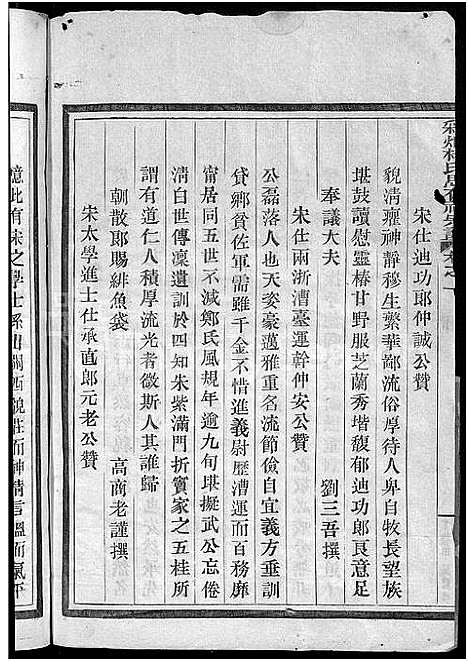 宋仕迪功郎仲誠公贊
貌清癯神靜穆生繁華鄙流俗厚待人卑自牧長望族
堪鼓讀慰靈椿甘野服芝蘭秀堦馥郁迪功郎良意足
奉議大夫 劉三吾撰
宋仕兩浙漕臺運幹仲安公贊
公磊落人也天姿豪邁雅重名流節儉自宜義方垂訓
貸鄉貧佐軍需雖千金不惜進義尉歷漕運而百務靡
甯居同五世不減鄭氏風規年逾九旬堪擬武公忘倦
清白世傳凜遺訓於四知朱紫滿門折竇家之五桂所
謂有道仁人積厚流光者微斯人其誰歸
朝散郎賜緋魚袋 高商老謹撰
宋太學進士仕承直郎元老公贊
憶此有宋之學士系出關西貌莊而神清言溫而氣下